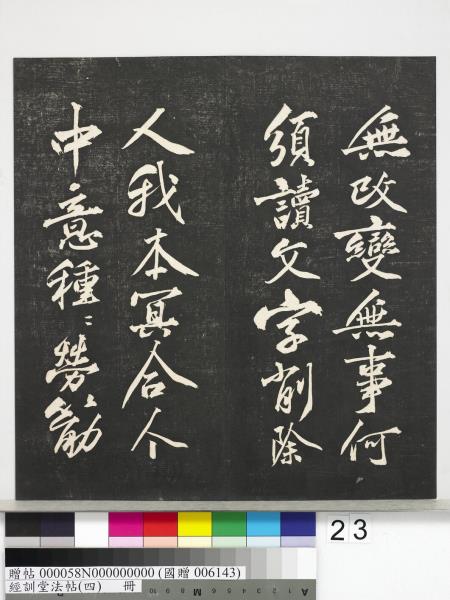 無改變無事何
須讀文字削除
人我本冥合个
中意種〻勞筋
23
贈帖 000058N000000000 (國贈 006143)
經訓堂法帖(四) 冊